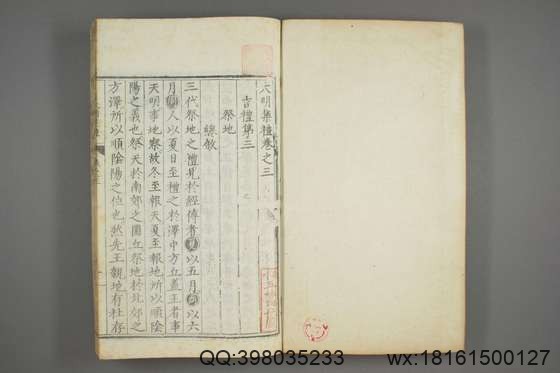 大明集禮卷之三
吉禮第三
祭地
總敘
三代祭地之禮見於經傳者夏以五月商以六
月周人以夏日至禮之於澤中方丘蓋王者事
天明事地察故冬至報天夏至報地所以順陰
陽之義也祭天於南郊之圜丘祭地於北郊之
方澤所以順陰陽之位也然先王親地有社存
QQ:398035233
wx:18161500127